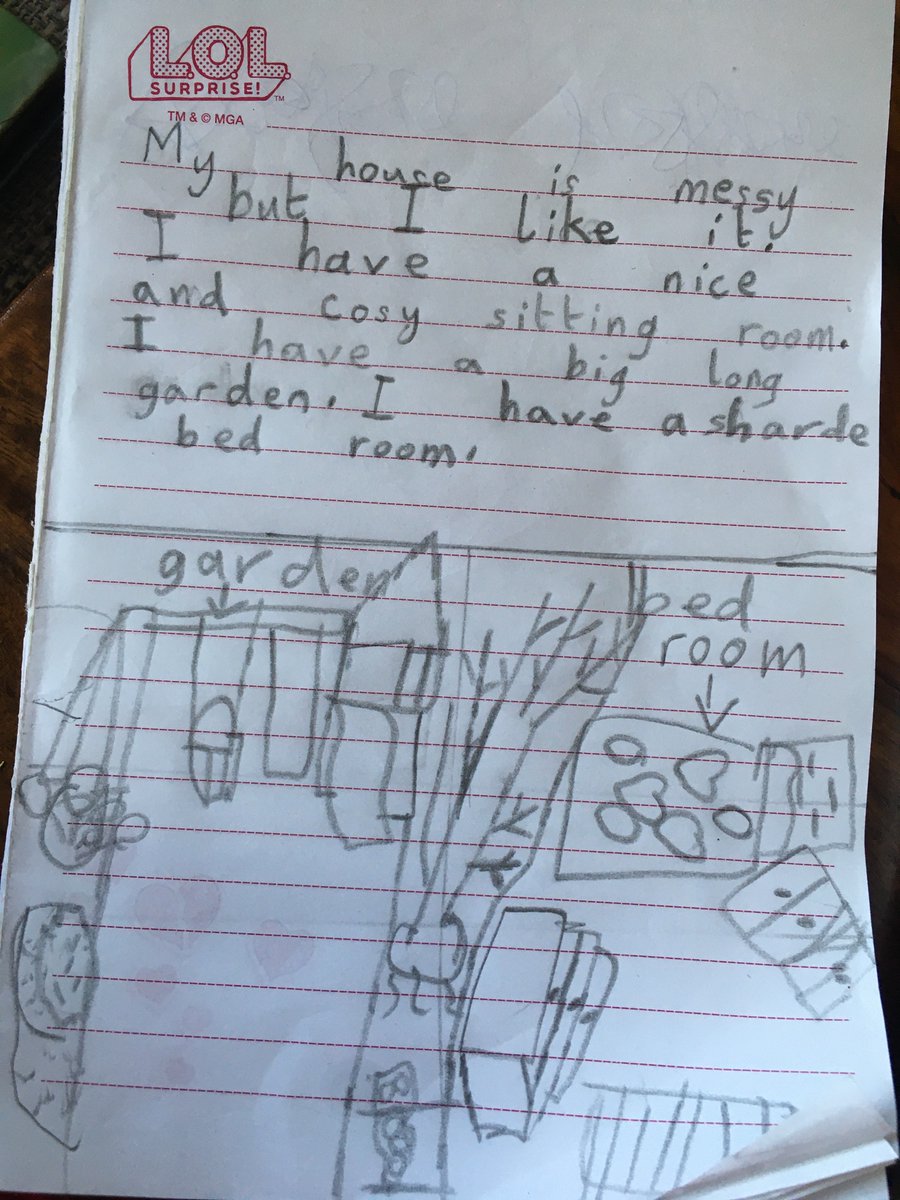 L.O.L.
SURPRISE!™
TM & © MGA
My house is messy
but I like it.
I have a nice
and cosy sitting room.
I have a big long
garden. I have a sharde
bed room.
garden
bed
room